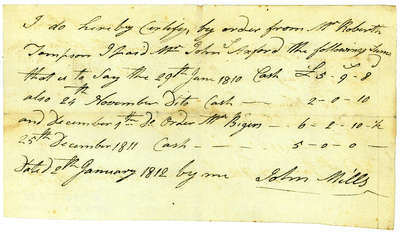 I do hereby Certify, by order from Mr Robert
Tampson I paid Mr John the following Sums
that is to Say the 29th June 1810 Cash £5-9-8
also 24th November Dito Cash — 2-0-10
and December 1th Do Order Mr Bigers — 6-2-10-½
25th December 1811 Cash — — 5-0-0 —
Dated 2th January 1812 by me John Mills